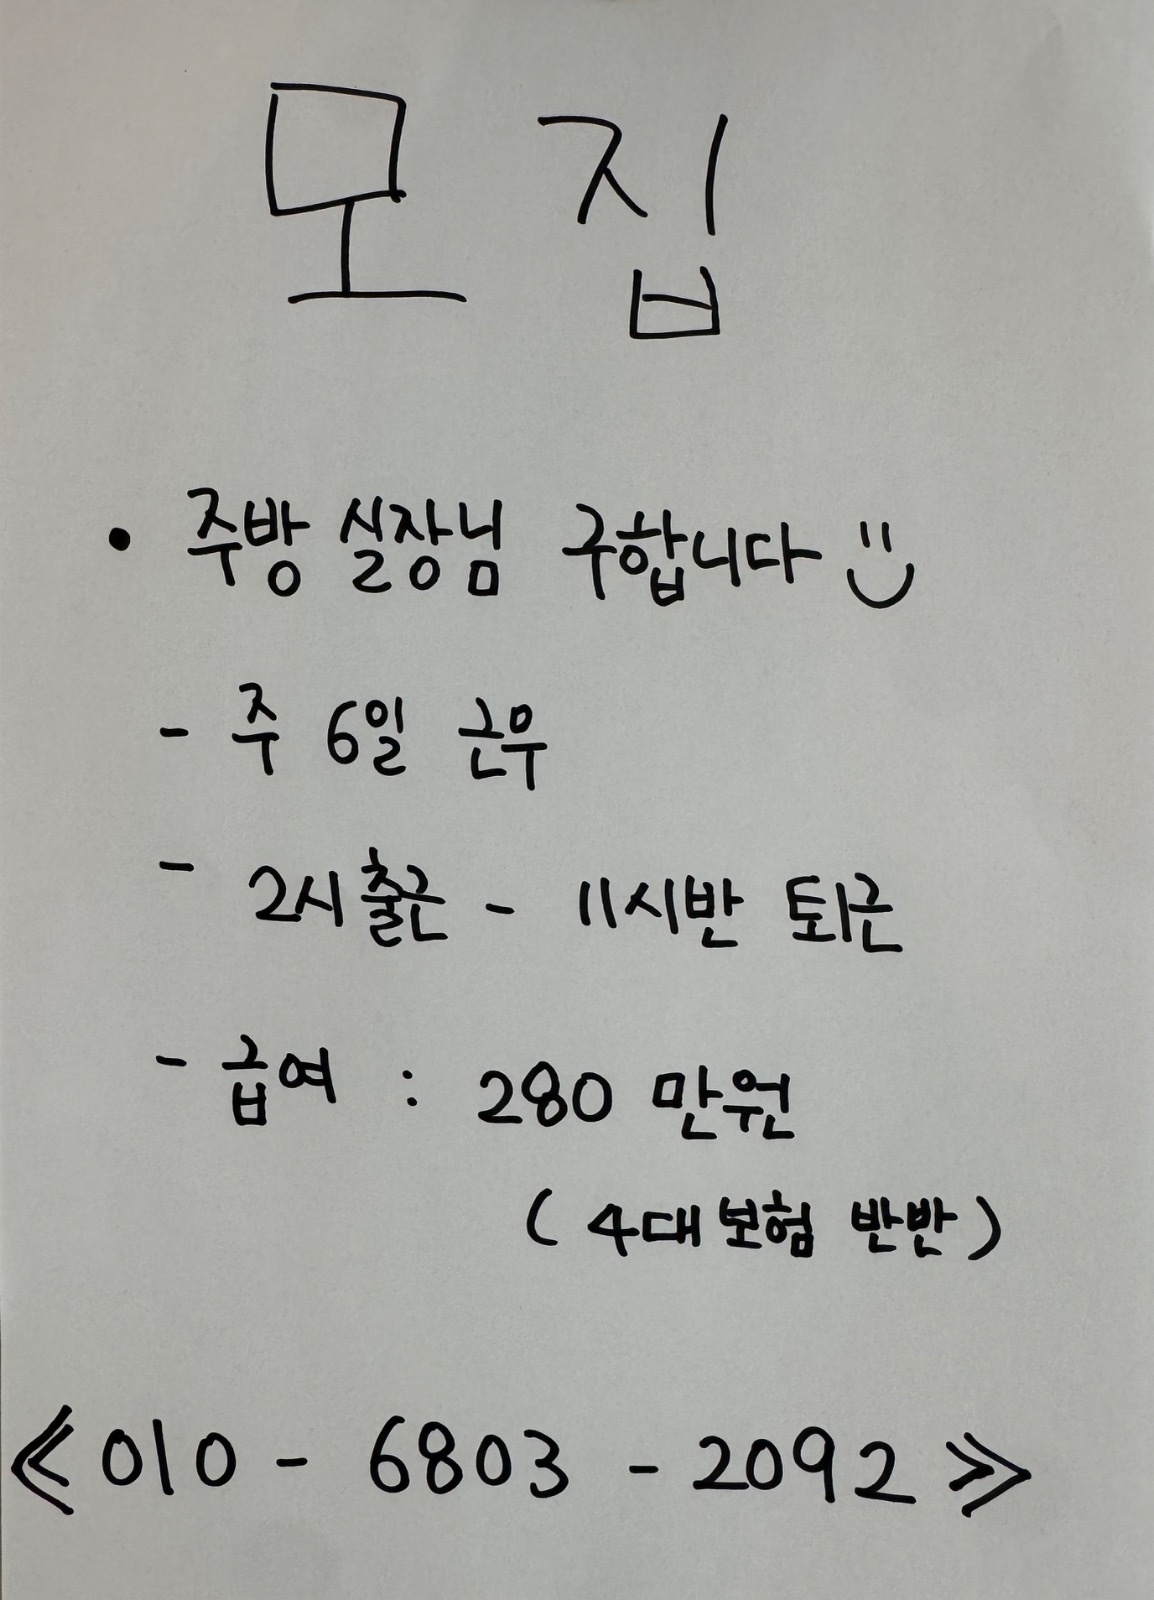 모집
• 주방 실장님 구합니다 :)
- 주 6일 근무
- 2시출근 - 11시반 퇴근
- 급여 : 280 만원
( 4대보험 반반 )
≪ 010 - 6803 - 2092 ≫